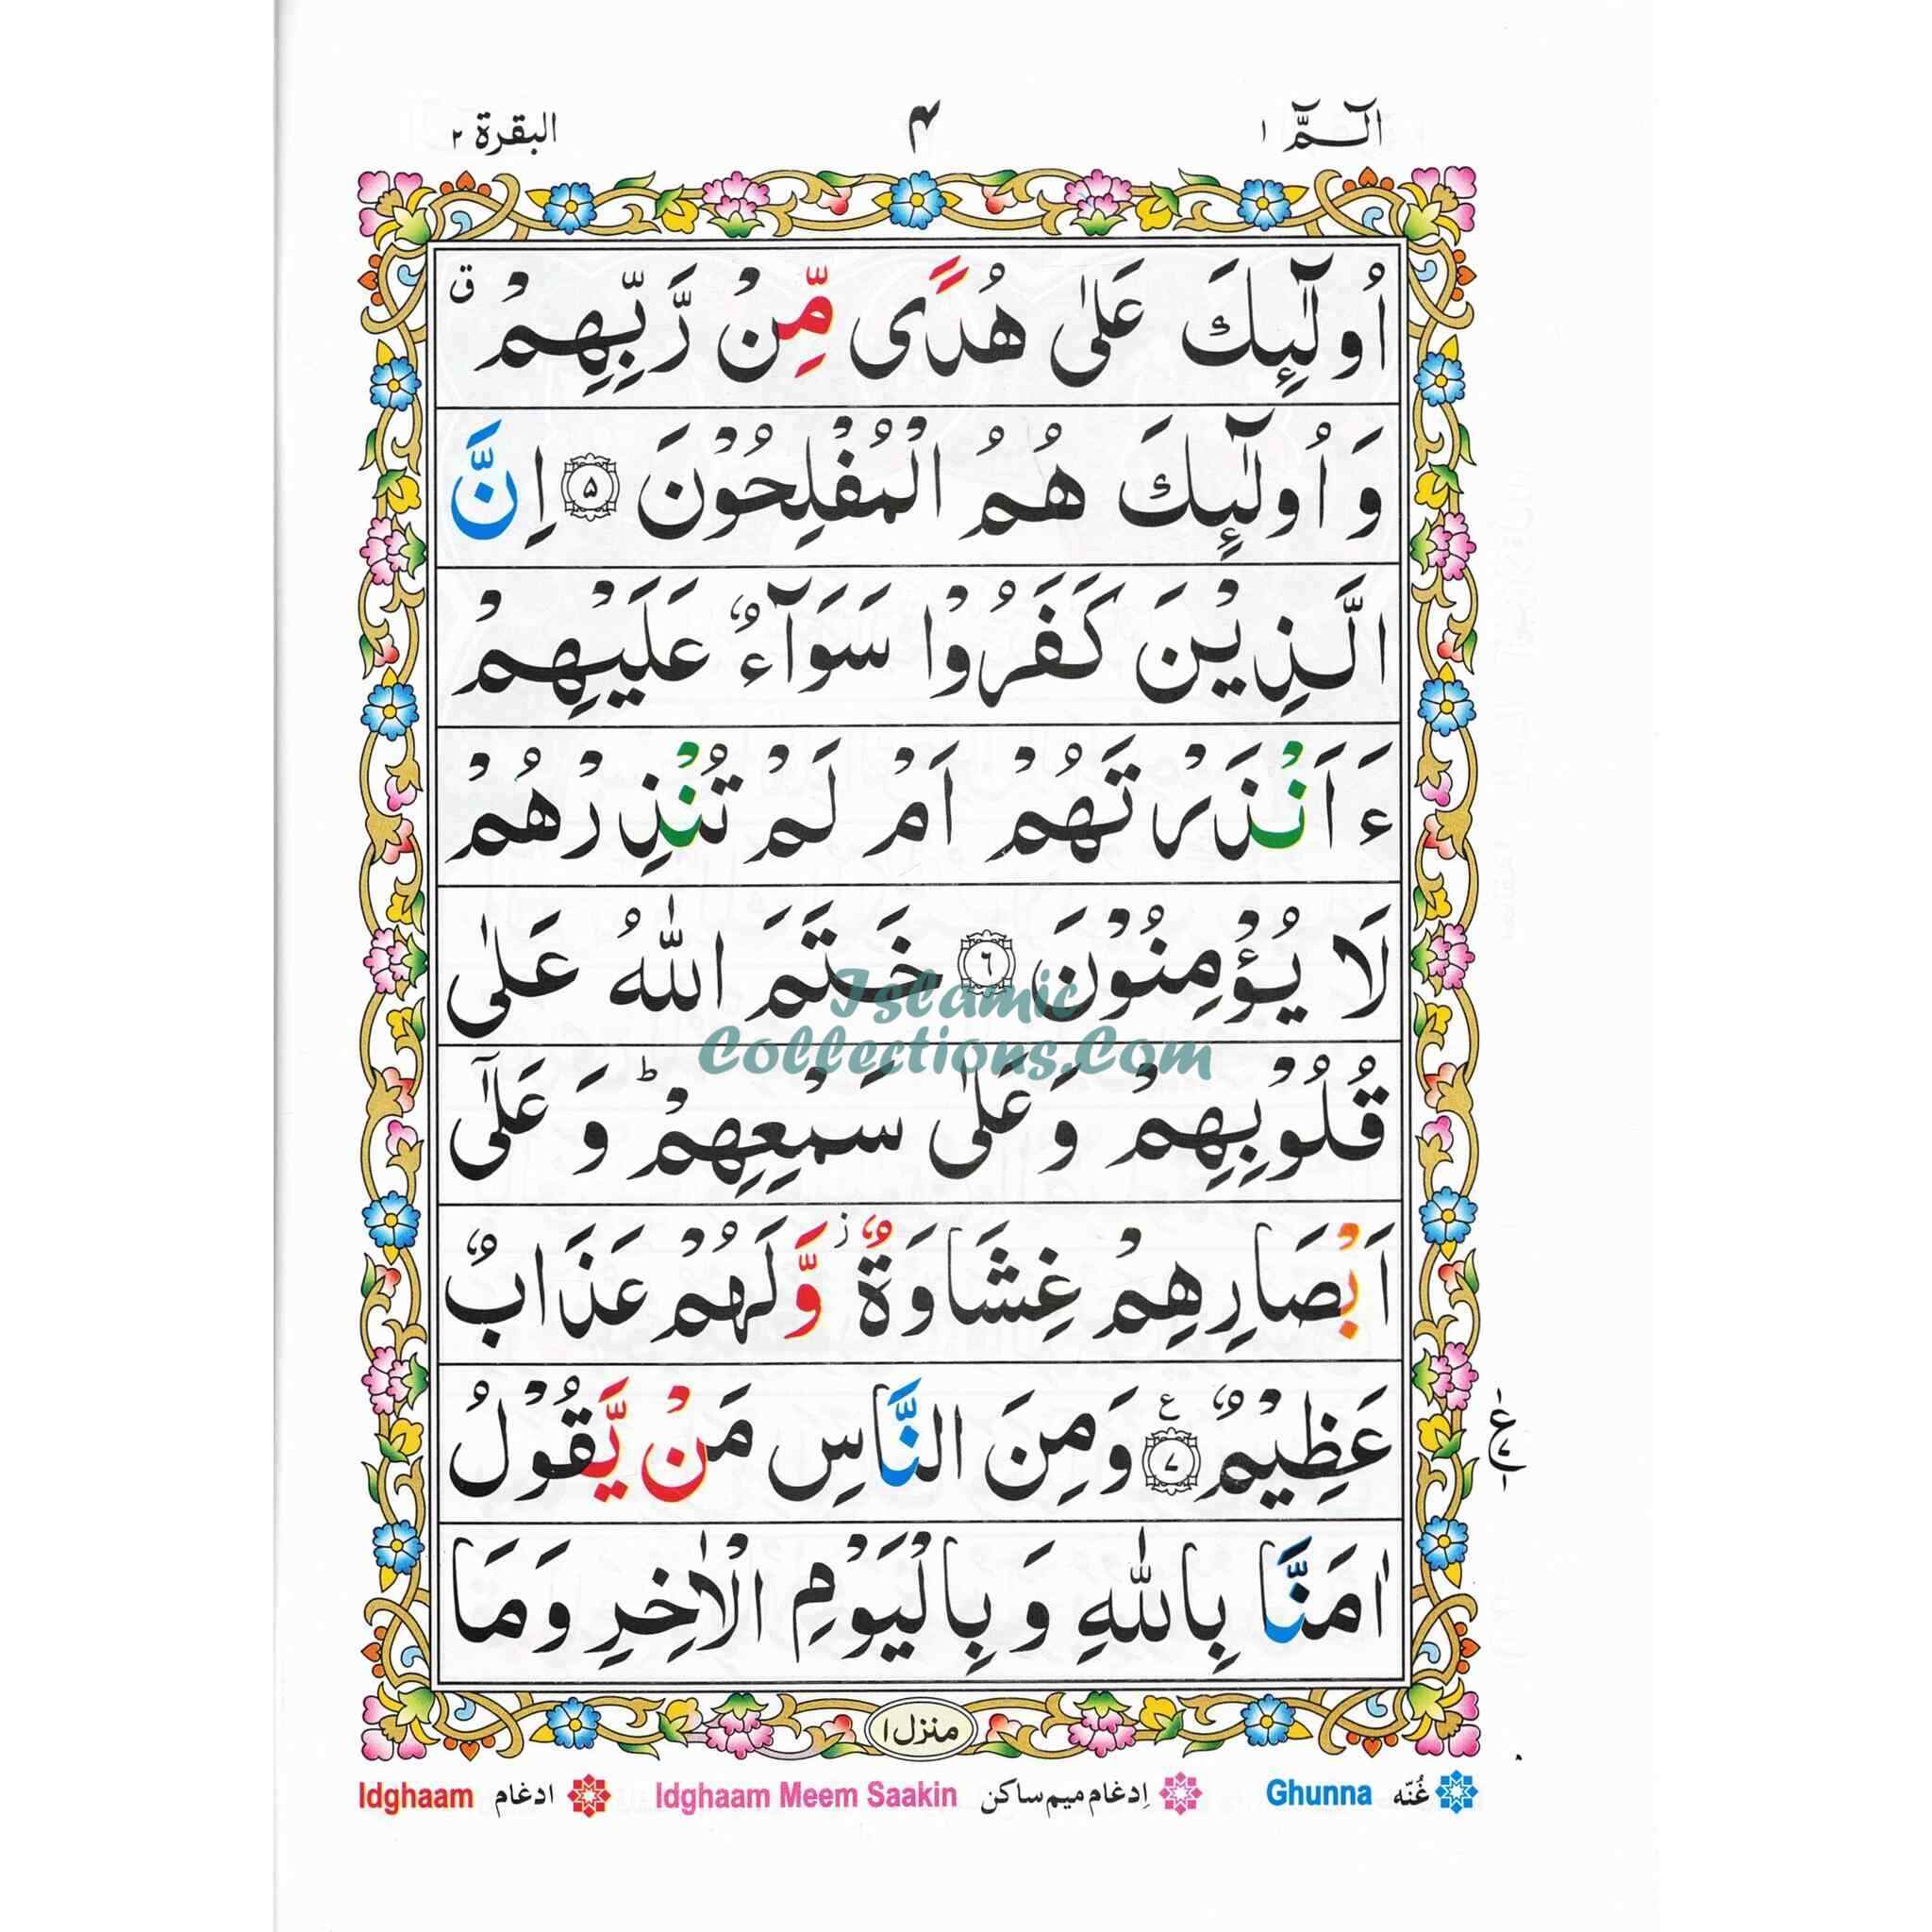 الٓـمّٓ ١
٤
البقرة ٢
اُولٰٓئِكَ عَلٰى هُدًى مِّنْ رَّبِّهِمْ ۙق
وَاُولٰٓئِكَ هُمُ الْمُفْلِحُوْنَ ۝٥ اِنَّ
الَّذِيْنَ كَفَرُوْا سَوَآءٌ عَلَيْهِمْ
ءَاَنْذَرْتَهُمْ اَمْ لَمْ تُنْذِرْهُمْ
لَا يُؤْمِنُوْنَ ۝٦ خَتَمَ اللّٰهُ عَلٰى
Islamic
Collections.Com
قُلُوْبِهِمْ وَعَلٰى سَمْعِهِمْ ؕ وَعَلٰٓى
اَبْصَارِهِمْ غِشَاوَةٌ ز وَّلَهُمْ عَذَابٌ
عَظِيْمٌ ۝٧ ع وَمِنَ النَّاسِ مَنْ يَّقُوْلُ
اٰمَنَّا بِاللّٰهِ وَبِالْيَوْمِ الْاٰخِرِ وَمَا
منزل ١
غُنّه Ghunna
اِدغام ميم ساكن Idghaam Meem Saakin
ادغام Idghaam